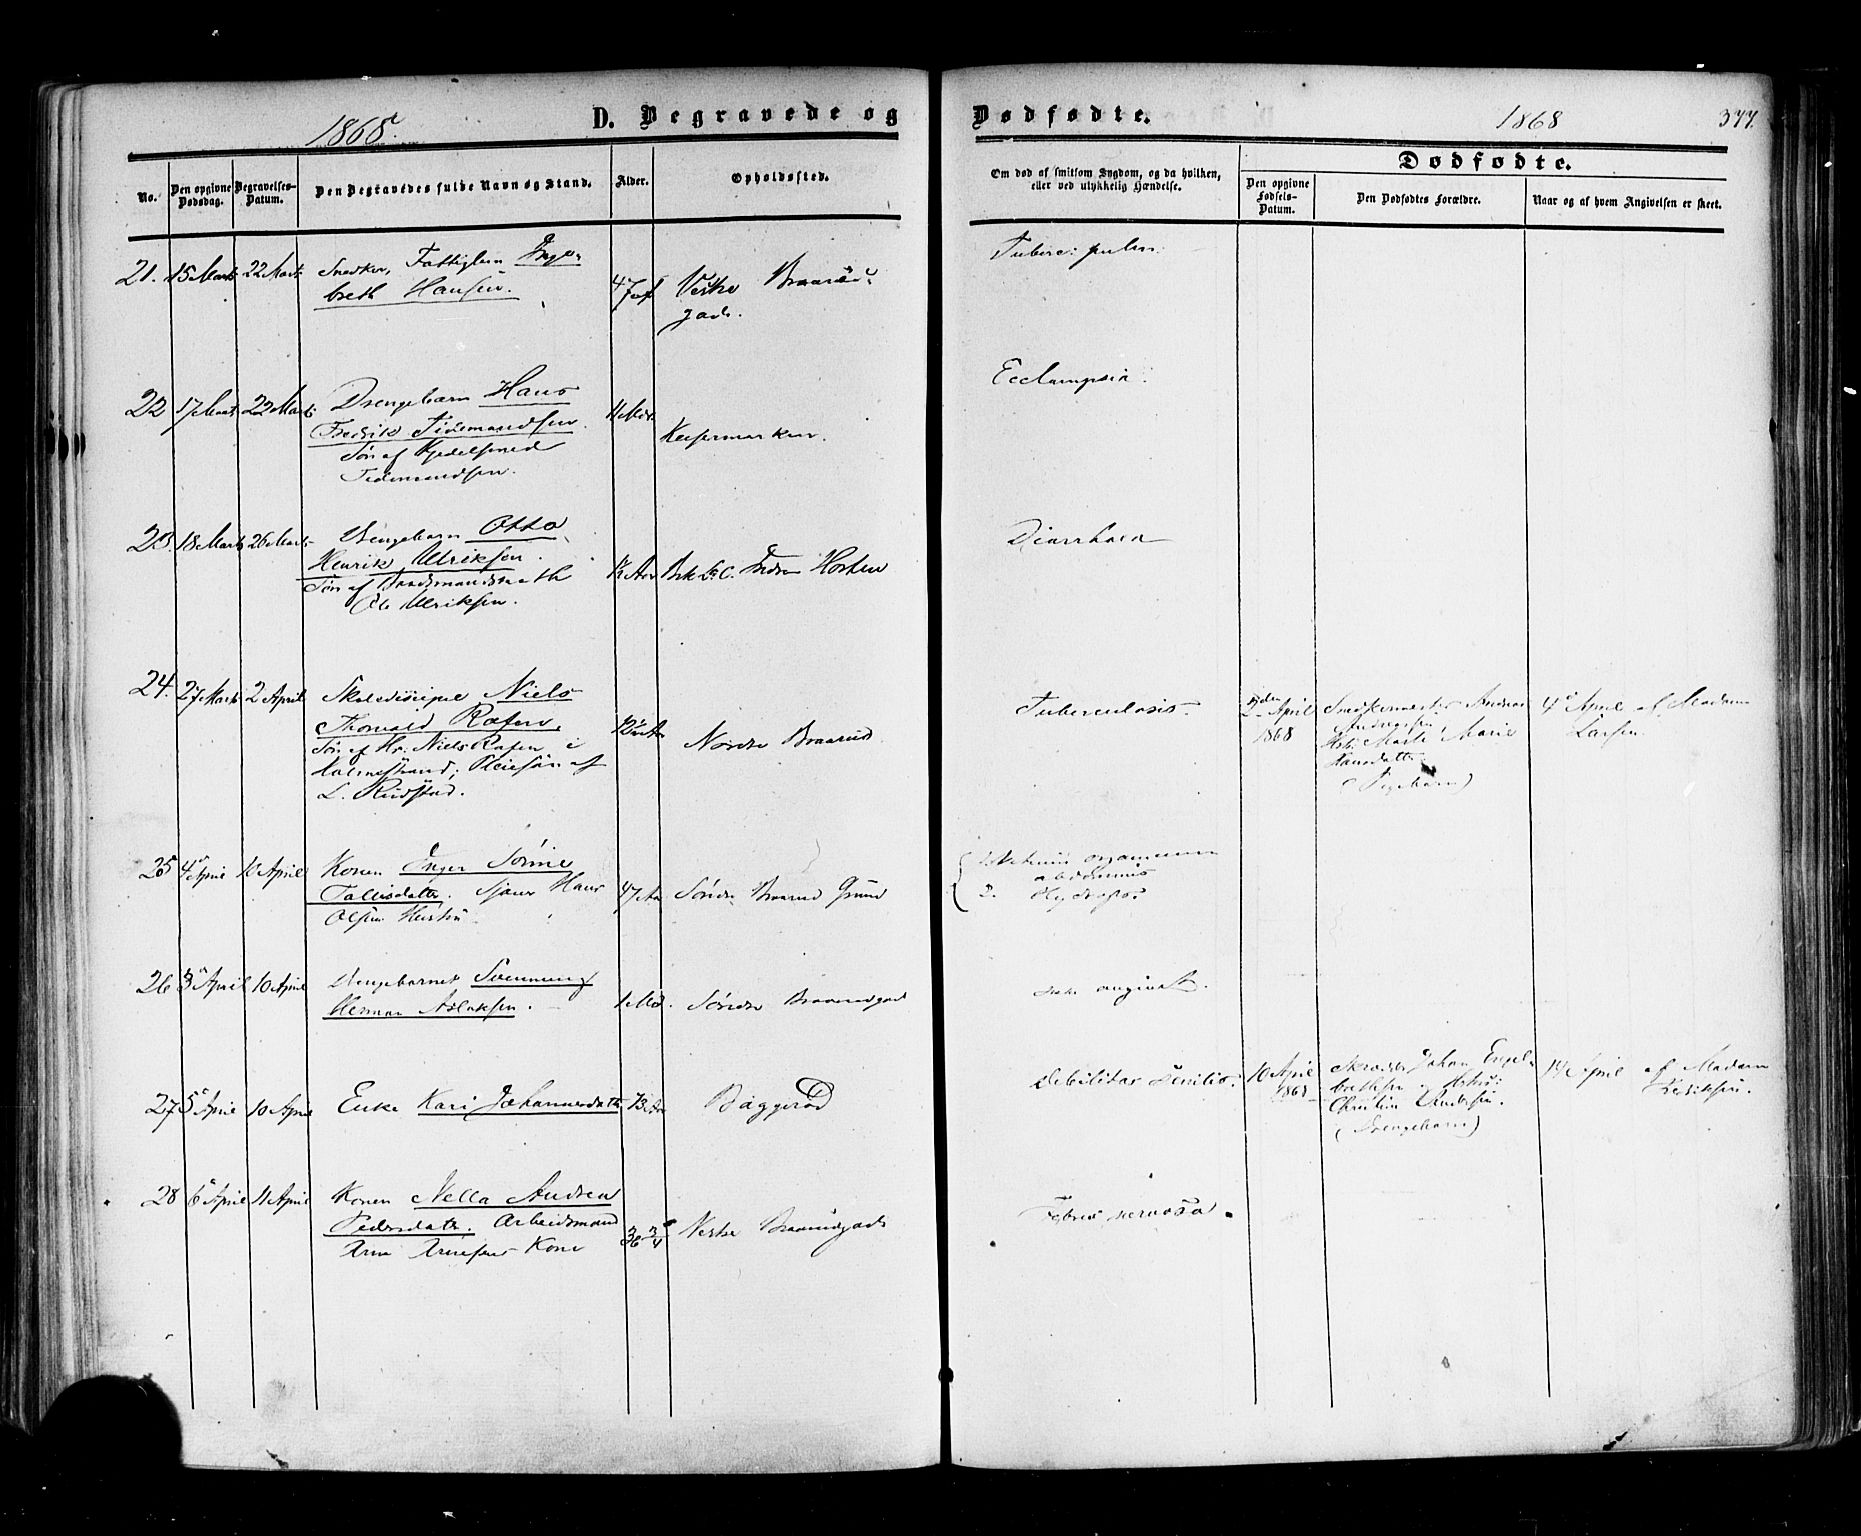 1868.
D. Begravede og
No.
Den opgivne Dødsdag.
Begravelses-Datum.
Den Begravedes fulde Navn og Stand.
Alder.
Opholdssted.
21. 15 Marts 22 Marts Snedker, Fattiglem Inge-
breth Hansen. 47 Vestre Braarud-
gade.
22 17 Marts 22 Marts Drengebarn Hans
Fredrik Tidemandsen. 11 Mdr.
Søn af
Tidemandsen.
23. 18 Marts 26 Marts Drengebarn Otto
Henrik Ulriksen.
Søn af Baadsmandsmath
Ole Ulriksen. Horten
24. 27 Marts 2 April Skoledisipel Niels
Thorvald Rafen,
Søn af Hr. Niels Rafen i
Holmestrand; Pleiesøn af
L. Rudstad. Nordre Braarud
25 4 April 10 April Konen Inger Sørine
Tollisdatter. Hans
Olsens Hustru 47 Aar Søndre Braarud Grund
26 3 April 10 April Drengebarnet
Herman Aslaksen. 1 Md. Søndre Braarudgade
27 5 April 10 April Enke Kari Johannesdatter 73 Aar Baggerød
28 6 April 11 April Konen Nella Andrea
Pedersdatter. Arbeidsmand
Arne Arnesens Kone 36 3/4 Vestre Braarudgade
Dødfødte.
1868
377.
Om død af smitsom Sygdom, og da hvilken,
eller ved ulykkelig Hændelse.
Dødfødte.
Den opgivne Fødsels-Datum.
Den Dødfødtes Forældre.
Naar og af hvem Angivelsen er skeet.
Tuberc: pulm:
Ecclampsia.
Diarrhoea
Tuberculosis. 2den April
1868 Snedkermester Andreas
Andreassen,
Marie
Hansdatter
(Pigebarn) 4 April af Madam
Larsen
1.
abdominis
2. Hydrops
ikke angivet.
Debilitas senilis. 10 April
1868 Skræder Johan Engel-
brethsen
Christine Andersen.
(Drengebarn) 14 April af Madam
Febris nervosa.